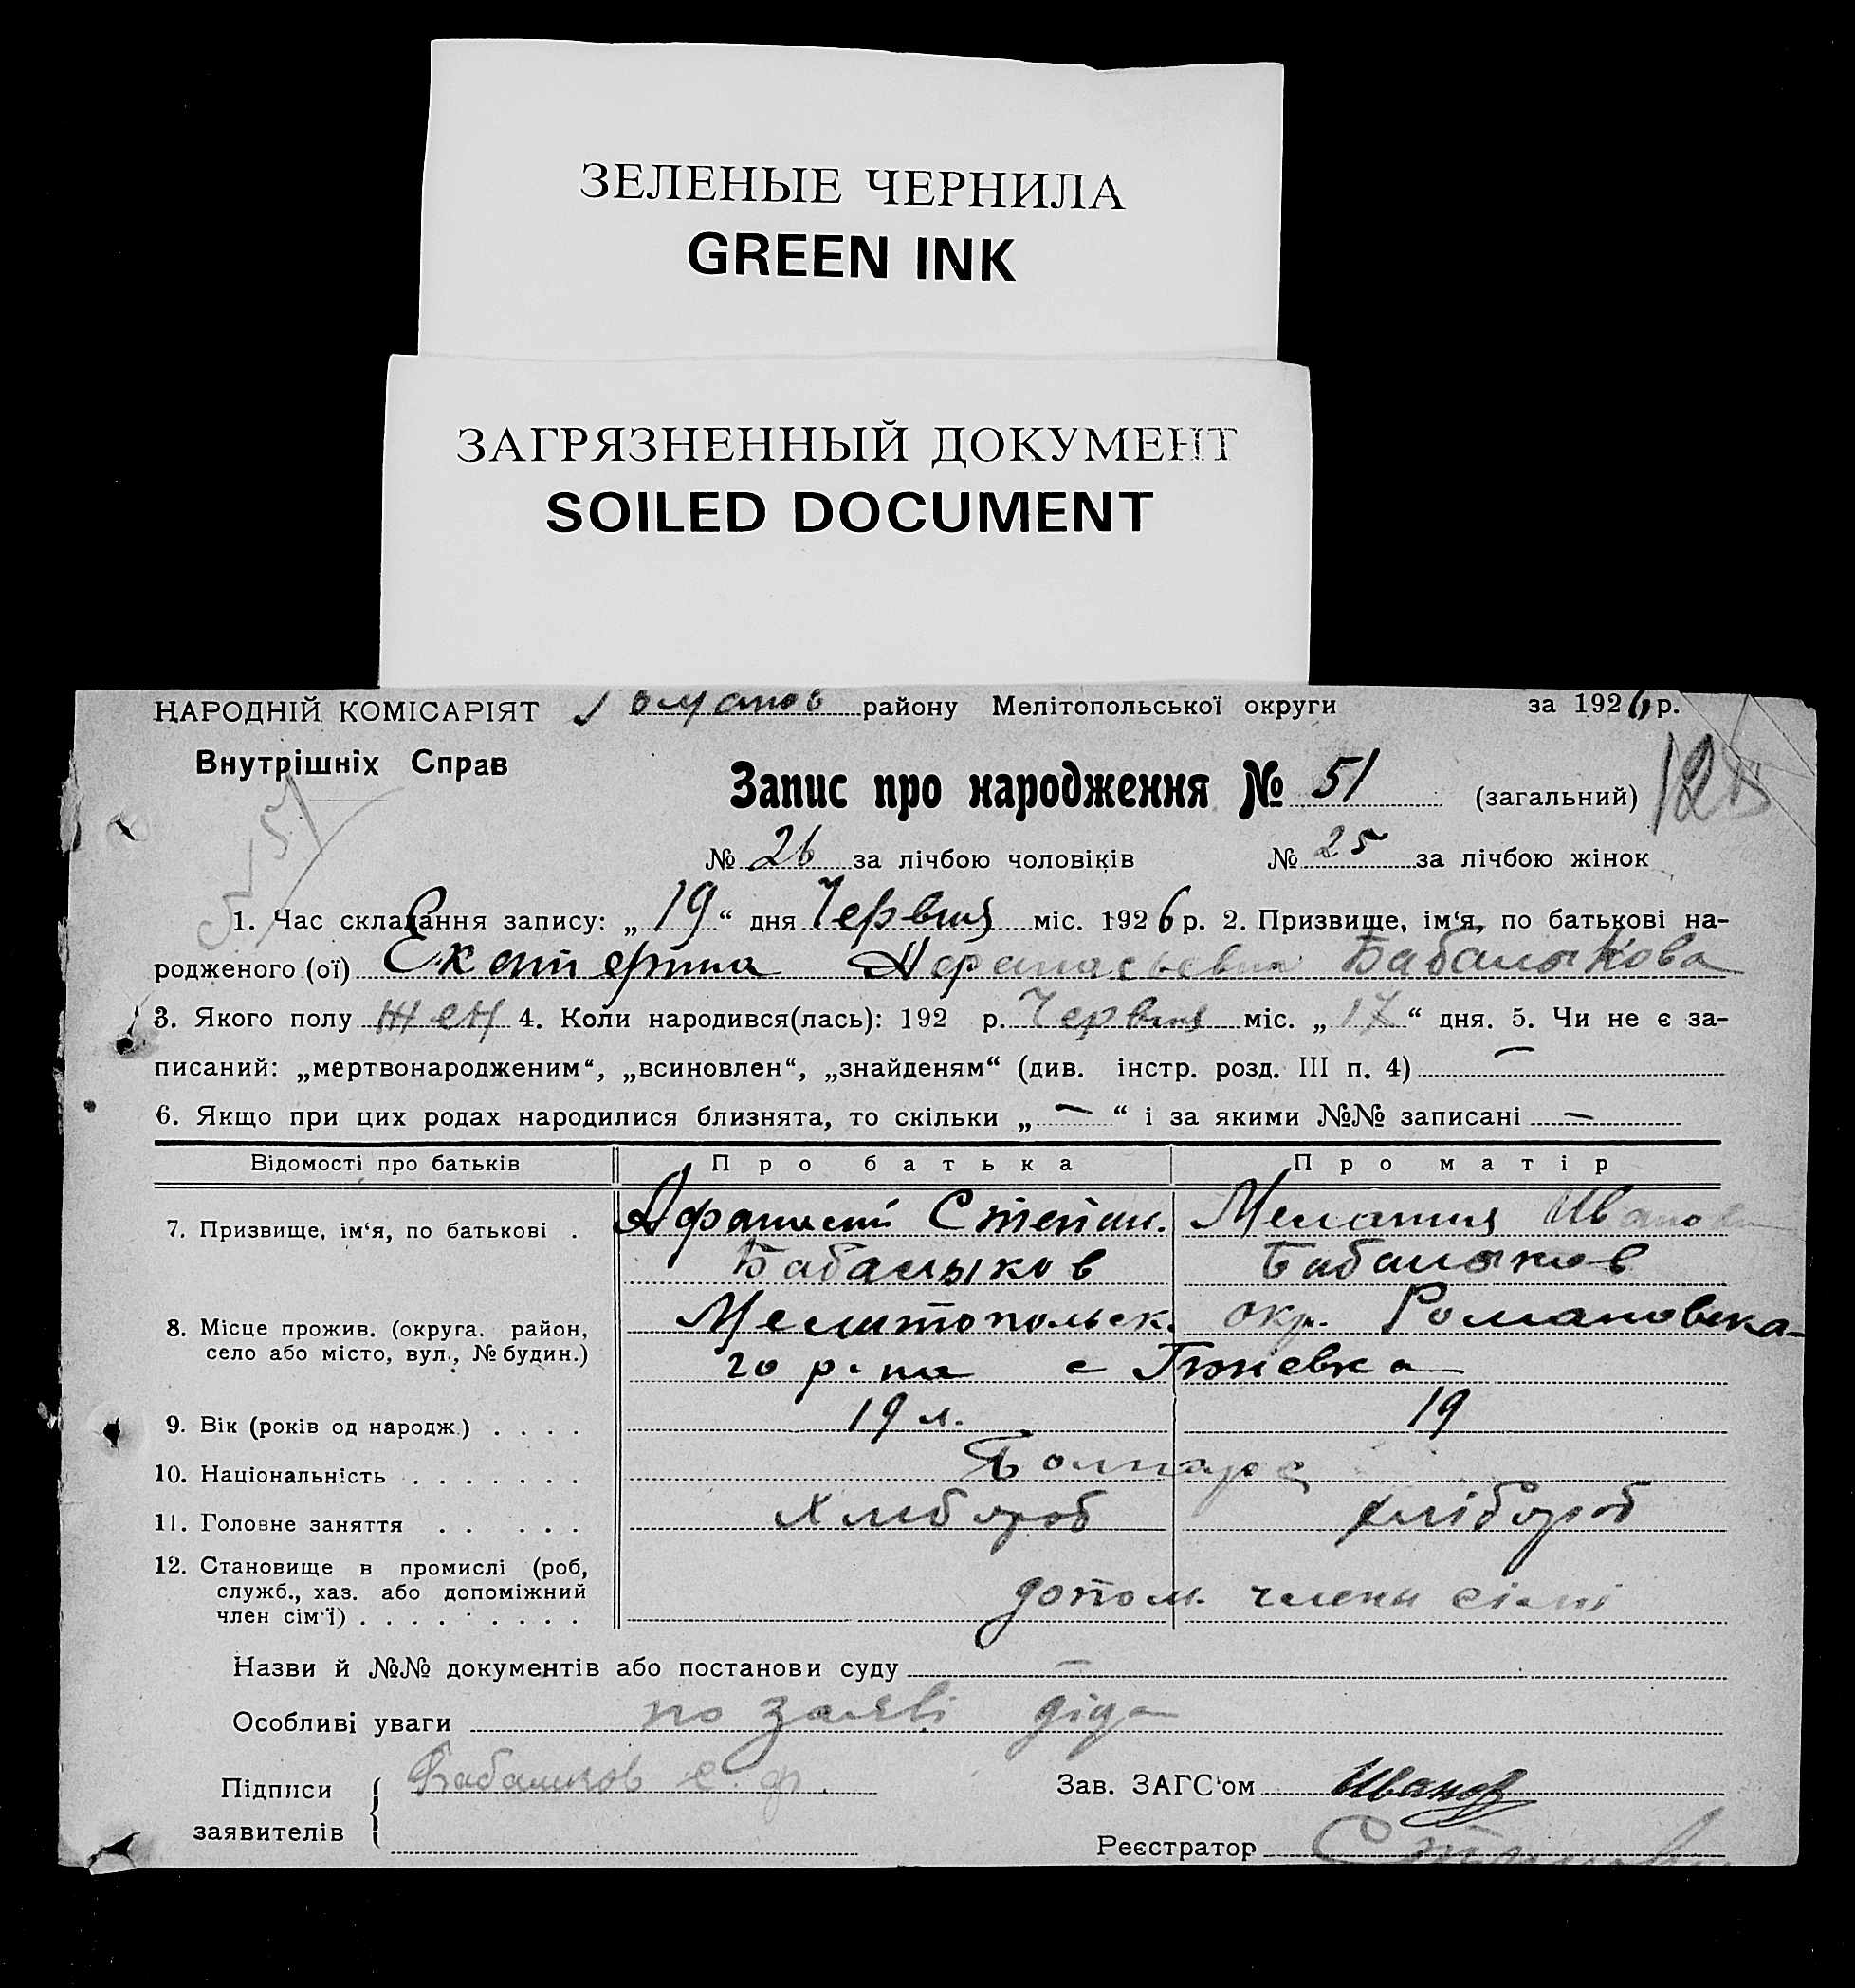 ЗЕЛЕНЫЕ ЧЕРНИЛА
GREEN INK
ЗАГРЯЗНЕННЫЙ ДОКУМЕНТ
SOILED DOCUMENT
НАРОДНІЙ КОМІСАРІЯТ Романов району Мелітопольської округи за 1926 р.
Внутрішніх Справ
Запис про народження № 51 (загальний)
№ 26 за лічбою чоловіків № 25 за лічбою жінок
1. Час складання запису: „19“ дня Червня міс. 1926 р. 2. Призвище, ім‘я, по батькові на-
родженого (ої) Екатерина Афанасьевна Бабалыкова
3. Якого полу жен 4. Коли народився(лась): 192 р. Червня міс. „17“ дня. 5. Чи не є за-
писаний: „мертвонародженим“, „всиновлен“, „знайденям“ (див. інстр. розд. III п. 4) —
6. Якщо при цих родах народилися близнята, то скільки „—“ і за якими №№ записані —
Відомості про батьків Про батька Про матір
7. Призвище, ім‘я, по батькові . Афанасий Степан. Мелания Иванов
Бабалыков Бабалыков
8. Місце прожив. (округа. район, Мелитопольск. окр. Романовска-
село або місто, вул., № будин.) го р-на с Гюневка
9. Вік (років од народж.) . . . . 19 л. 19
10. Національність . . . . . . . Болгаре
11. Головне заняття . . . . . Хлібороб хлібороб
12. Становище в промислі (роб,
служб., хаз. або допоміжний
член сім‘ї) . . . . . . . . . допом. члени сімі
Назви й №№ документів або постанови суду —
Особливі уваги по заяві діда
Підписи Бабалыков С. Ф. Зав. ЗАГС‘ом Иванов
заявителів
Реєстратор